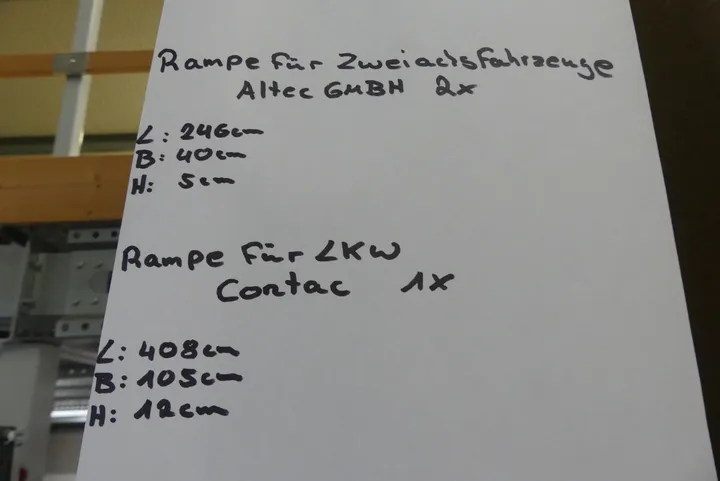 Rampe für Zweiachsfahrzeuge
Altec GMBH 2x
L: 246cm
B: 40cm
H: 5cm
Rampe für LKW
Contac 1x
L: 408cm
B: 105cm
H: 12cm